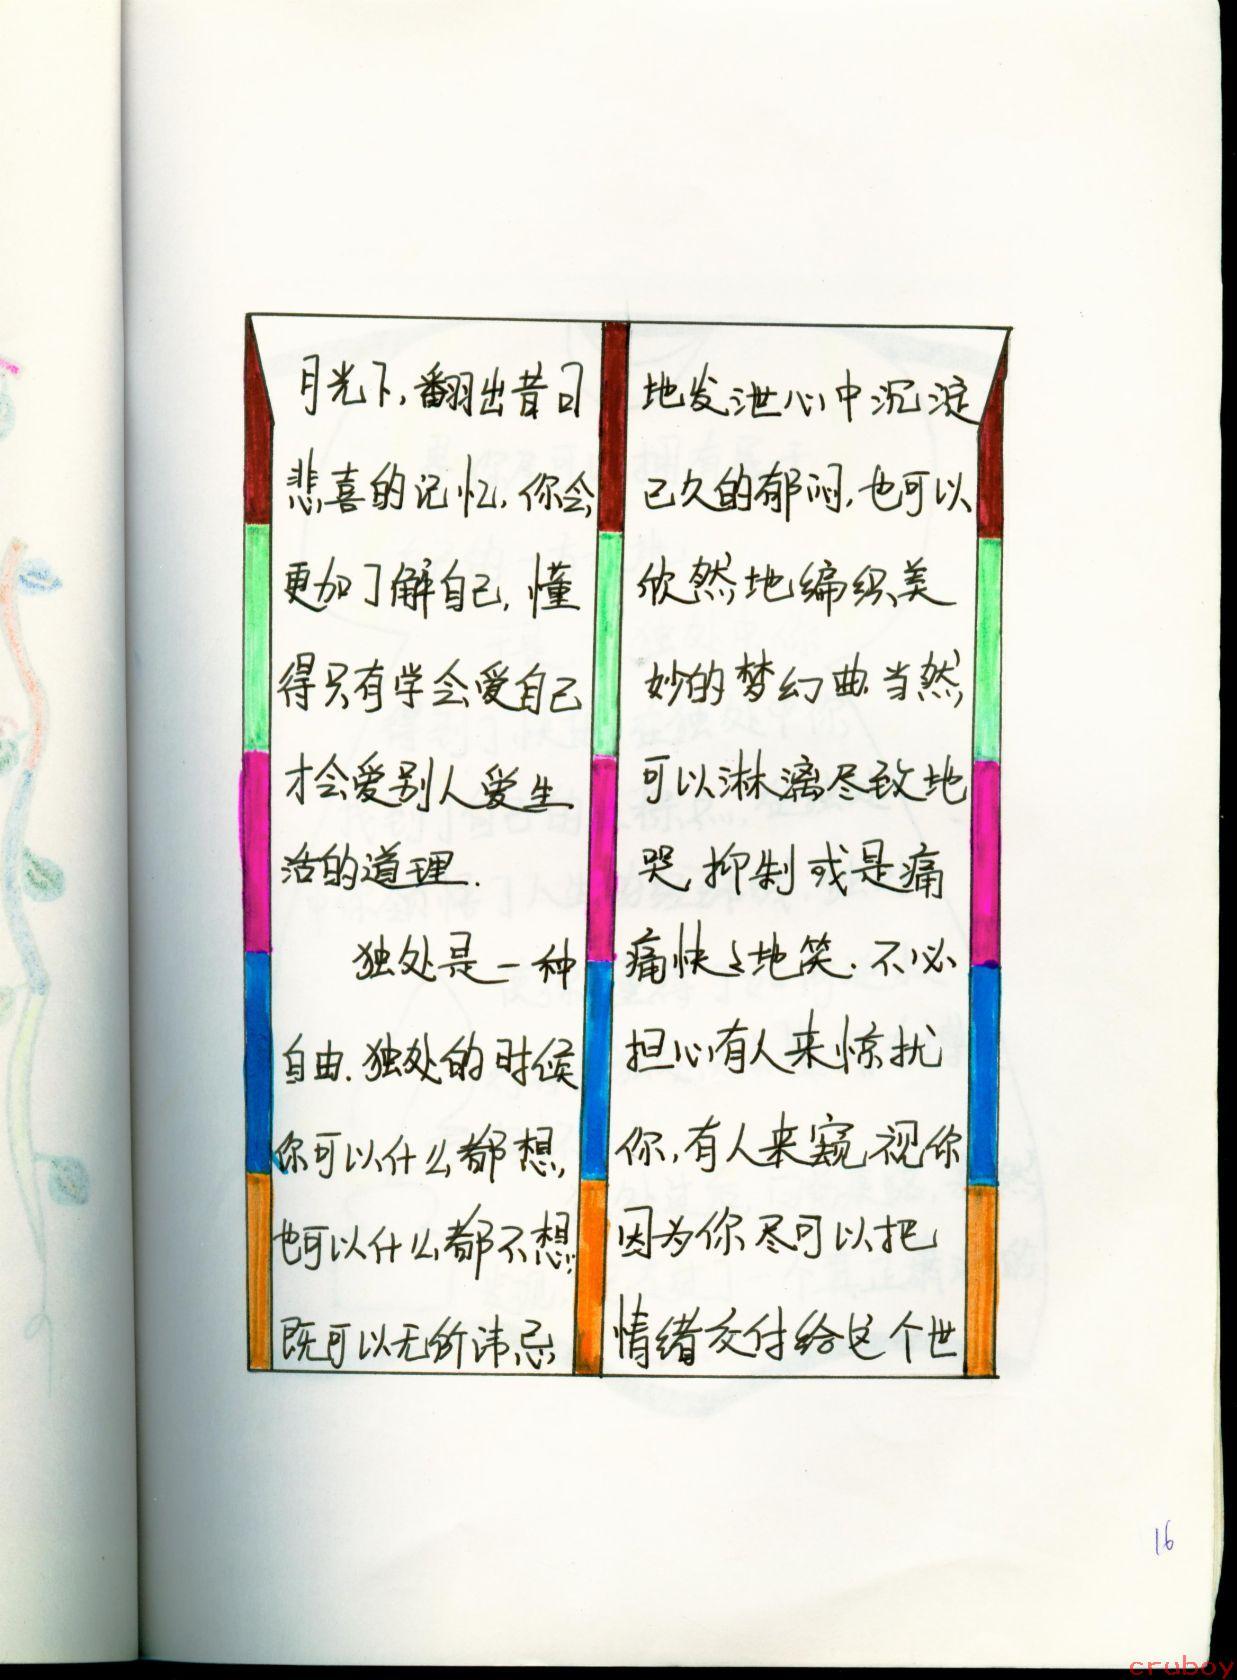 月光下,翻出昔日
悲喜的记忆,你会
更加了解自己,懂
得只有学会爱自己
才会爱别人爱生
活的道理.
独处是一种
自由.独处的时候
你可以什么都想,
也可以什么都不想,
既可以无所讳忌
地发泄心中沉淀
已久的郁闷,也可以
欣然地编织美
妙的梦幻曲.当然,
可以淋漓尽致地
哭,抑制或是痛
痛快々地笑.不必
担心有人来惊扰
你,有人来窥视你
因为你尽可以把
情绪交付给这个世
16
cruboy